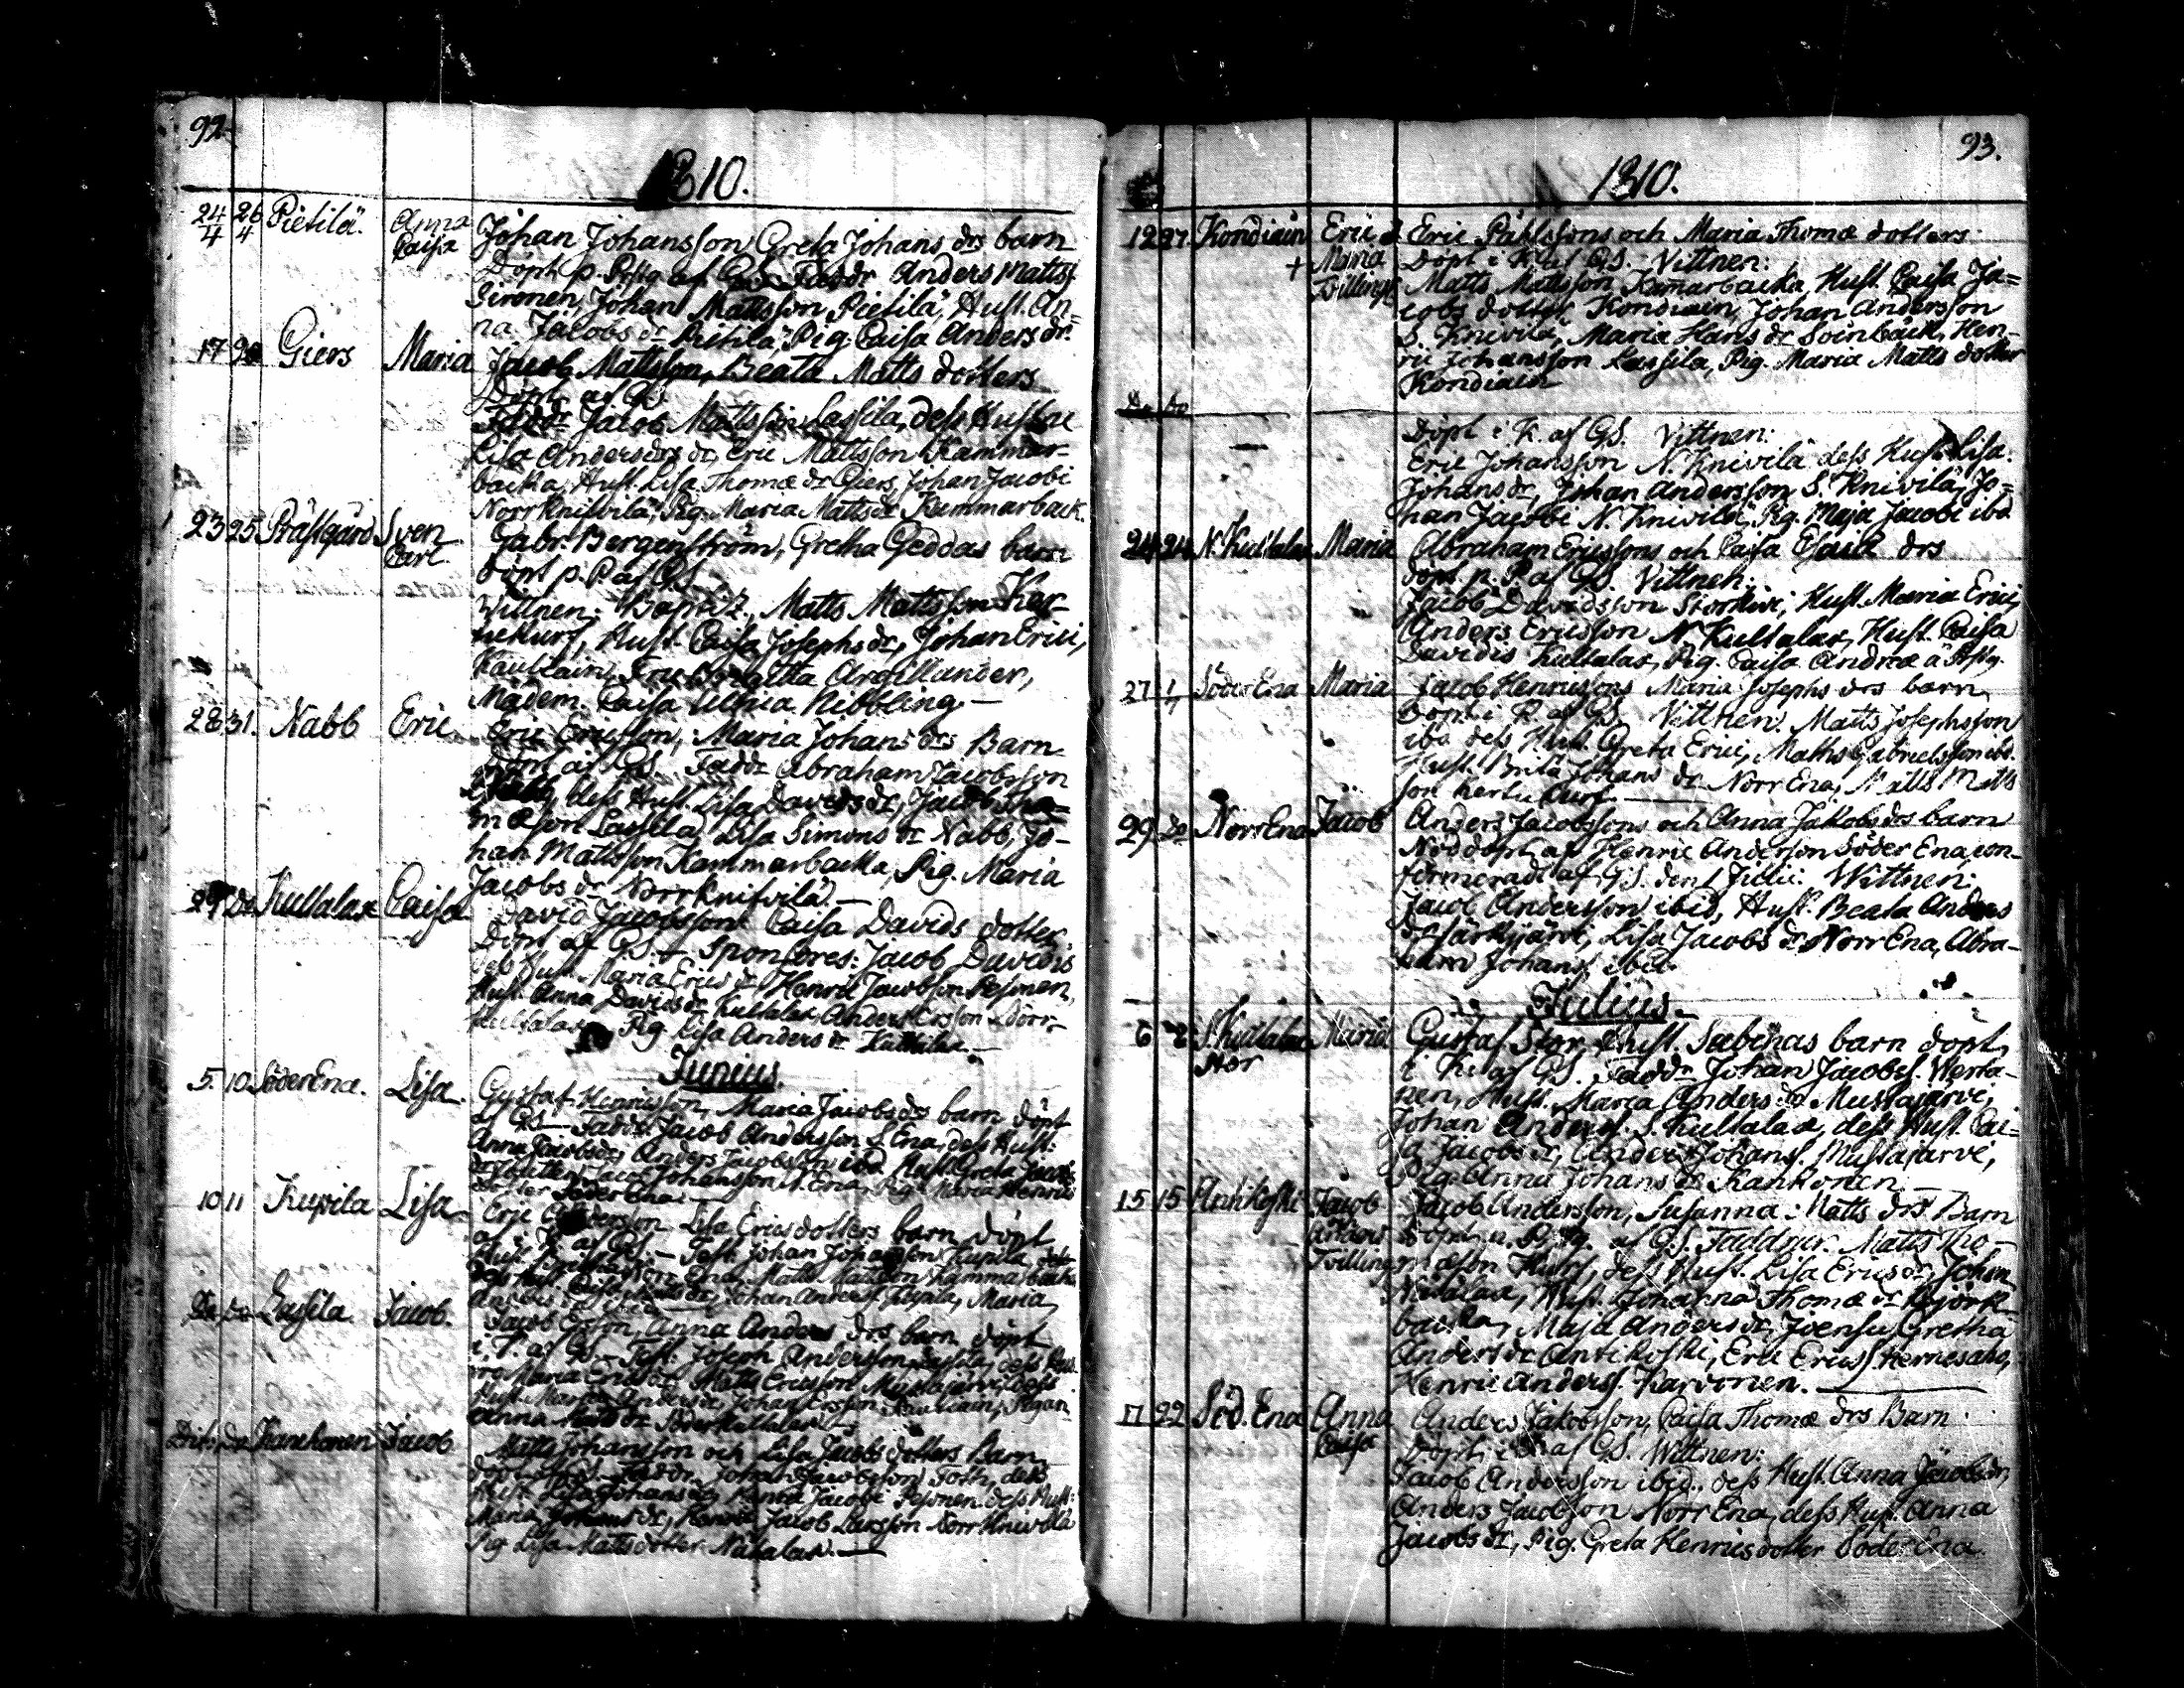 92
1810.
24/4 26/4 Pietilä. Anna Caisa Johan Johansson Greta Johans drs barn
Döpt p. Pstg af GS. Faddr Anders Mattss
Sironen, Johan Mattsson Pietilä, Hust. An=
na Jacobs dr Pietilä, Pig. Caisa Anders dr.
17 20 Giers Maria Jacob Mattsson, Beata Matts dotters
Döpt af GS
Faddr Jacob Mattsson Lassila, dess Hustru
Lisa Andersdr, Eric Mattsson Kammar-
backa, Hust. Lisa Thomæ dr Giers, Johan Jacobi
Norr Knifvilä, Pig. Maria Matts dr Kammarback.
23 25 Prästgård Sven Carl Gabr. Bergenström, Gretha Geddas barn
döpt p. P. af GS
Wittnen: Matts Mattsson
Hust. Caisa Josephs dr, Johan Erici,
Kauttain, Argillander,
Madem. Caisa Ulrica Nibbling —
28 31. Nabb Eric Eric Ericsson, Maria Johans drs Barn
döpt af GS. Faddr Abraham Jacobsson
Nabb, dess Hust. Lisa Davids dr, Jacob Tho=
mæson Lassila, Lisa Simons dr Nabb, Jo-
han Mattsson Kammarbacka, Pig. Maria
Jacobs dr Norrknifvilä —
29 Do Kultalax Caisa David Jacobsson Caisa Davids dotter
Döpt af GS. — Sponsores: Jacob Davidis
des Hust. Maria Erics dr Henric Jacobsson Pesonen,
Hust. Anna Davids dr Kultalax, Anders Ersson Norr-
kultalax, Pig Lisa Anders dr —
Junius.
5. 10 Söder Ena. Lisa Gustaf Henricsson, Maria Jacobs drs barn döpt
af GS — Faddr Jacob Andersson S. Ena, dess Hust.
Anna Jacobsdr, Anders Jacobsson ibd Hust Greta Jacobs
Jacob Johansson N. Ena, Pig. Maria Henrics
dotter Söder Ena. —
10 11 Kupila Lisa Eric Andersson Lisa Erics dotters barn döpt
af GS. — Test. Johan Johansson Kupila
Norr Ena, Matts Mattsson Kammarbacka
Johan Anderss Kupila, Maria
Do Do Lassila Jacob. Jacob Ersson, Anna Anders drs barn döpt
i P. af GS — Test. Joseph Andersson Lassila, dess Hust
Maria Erics dr Matts Ericsson Mustajärvi, dess
Hust. Maria Anders dr, Johan Ersson Kauttain, Pigan
Anna Söderkultalax
Dit. Do Kankonen Jacob Matts Johansson och Lisa Jacobs dotters Barn
döpt af GS. Faddr. Johan Jacobsson Toth, dess
Hust Lisa Johans dr, Henric Jacobi Pesonen dess Hust:
Maria Johans dr, Jacob Larsson Norr Knivilä
Pig Lisa Matts dotter Näkalax. —
93.
1810.
12 27. Kondiain Eric & + Maria Tvillingar Eric Påhlssons och Maria Thomæ dotters
Döpt i K. af GS. Vittnen:
Matts Mattsson Kamarbacka Hust. Caisa Ja=
cobs dotter Kondiain, Johan Andersson
S. Knivila, Maria Hans dr Svinbäck, Hen-
ric Johansson Lassila, Pig. Maria Matts dotter
Kondiain
Do Do — Döpt i K. af GS. Vittnen:
Eric Johansson N. Knivila dess Hust. Lisa.
Johans dr, Johan Andersson S. Knivilä, Jo=
han Jacobi N. Knivilä, Pig. Maja Jacobi ibd
24 24 N. Kultalax Maria Abraham Ericssons och Caisa Esaiæ drs
döpt p. P af GS. Vittnen:
Jacob Davidsson Storkivi, Hust. Maria Erici,
Anders Ericsson N. Kultalax, Hust. Caisa
Davidis Kultalax, Pig. Caisa Andreæ
27 1/7 Söder Ena Maria Jacob Henricsons Maria Josephs drs barn
Döpt i K. af GS. Vittnen. Matts Josephsson
ibd dess Hust. Greta Erici, Matths Gabrielsson ibd.
Hust. Brita Johans dr Norr Ena, Matts Matts
son
29 Do Norr Ena Jacob Anders Jacobssons och Anna Jakobs drs barn
Nöddöpt af Henric Anderson Söder Ena con-
firmerad af GS. den 1 Julii. Wittnen.
Jacob Andersson ibid, Hust. Beata Anders
dr Särkijärvi, Lisa Jacobs dr Norr Ena, Abra-
ham Johanss ibid.
Julius.
6 8 S. Kultalax Stor Maria Gustaf Stor & Hust. Sabinas barn döpt,
i K. af GS. Faddr Johan Jacobss. Werta-
nen, Hust. Maria Anders dr Mustajärvi,
Johan Anderss. S. Kultalax, dess Hust. Cai-
sa Jacobs dr, Anders Johanss. Mustajärvi,
Pig. Anna Johans dr Kankonen —
15 15 Antikoski Jacob Anders Tvilling Jacob Andersson, Susanna Matts drs Barn
döpt af GS. Faddrar. Matts Tho-
mæson Kurs, dess Hust. Lisa Erics dr, Johan
Näkälax, Hust. Johanna Thomæ dr Björk
backa, Maja Anders dr, Joensu, Gretha
Anders dr Antikoski, Eric Ericss Hernesaho,
Henric Anderss. Karvonen. —
17 22 Söd. Ena Anna Caisa Anders Jakobsson, Caisa Thomæ drs Barn.
Döpt i K af GS. Wittnen:
Jacob Andersson ibid. dess Hust. Anna Jacobs dr,
Anders Jacobsson Norr Ena, dess Hust. Anna
Jacobs dr, Pig. Greta Henrics dotter Söder Ena.